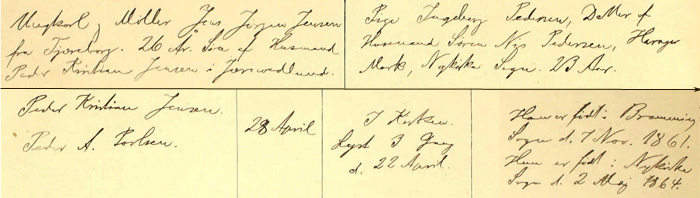 Ungkarl, Møller Jens Jørgen Jensen
fra Tjæreborg. 26 Aar. Søn af Husmand
Peder Kristian Jensen i Jernvedlund.
Pige Ingeborg Pedersen, Datter af
Husmand Søren Nis Pedersen,
Mark, Nykirke Sogn. 23 Aar.
Peder Kristian Jensen.
Peder A. Poulsen.
28 April
I Kirken.
Lyst 3 Gang
d. 22 April.
Han er født i Bramming
Sogn d. 7 Nov. 1861.
Hun er født i Nykirke
Sogn d. 2 Maj 1864.